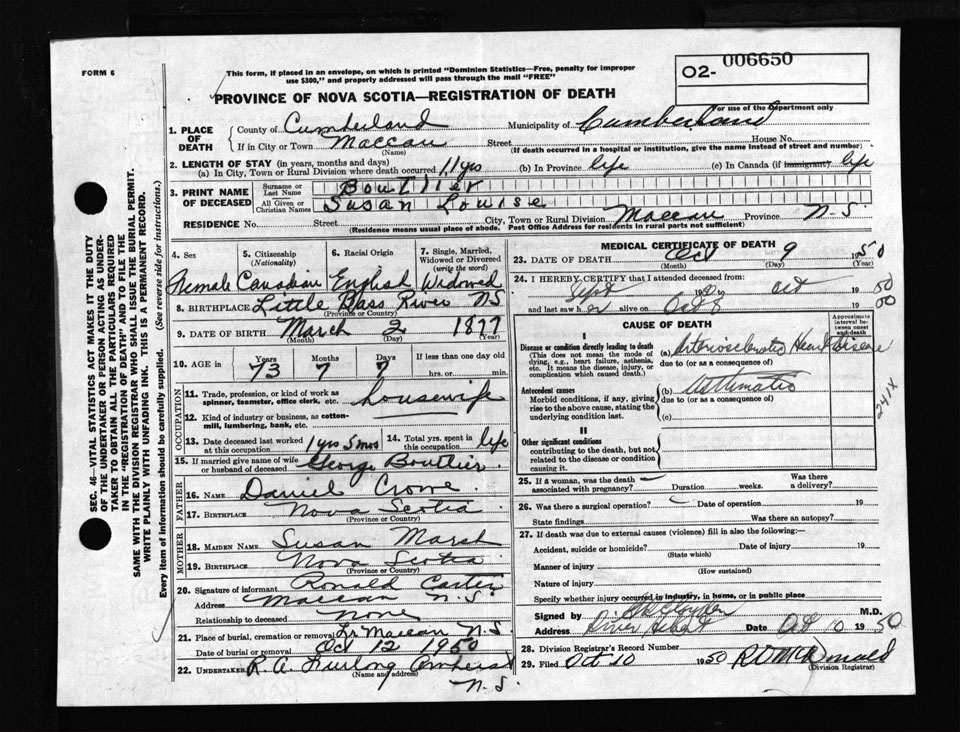 FORM 6
This form, if placed in an envelope, on which is printed "Dominion Statistics—Free, penalty for improper
use $300," and properly addressed will pass through the mail "FREE"
O2- 006650
For use of the Department only
PROVINCE OF NOVA SCOTIA—REGISTRATION OF DEATH
1. PLACE OF DEATH { County of Cumberland Municipality of Cumberland
If in City or Town Maccan (Name) Street House No.
(If death occurred in a hospital or institution, give the name instead of street and number)
2. LENGTH OF STAY (in years, months and days)
(a) In City, Town or Rural Division where death occurred 11 yrs (b) In Province life (c) In Canada (if immigrant) life
3. PRINT NAME OF DECEASED { Surname or Last Name Boutlier
All Given or Christian Names Susan Louise
RESIDENCE No. Street City, Town or Rural Division Maccan Province N.S.
(Residence means usual place of abode. Post Office Address for residents in rural parts not sufficient)
4. Sex 5. Citizenship (Nationality) 6. Racial Origin 7. Single, Married, Widowed or Divorced (write the word)
Female Canadian English Widowed
8. BIRTHPLACE Little Bass River NS
(Province or Country)
9. DATE OF BIRTH March 2 1877
(Month) (Day) (Year)
10. AGE in Years Months Days If less than one day old
73 7 7 hrs. or min.
OCCUPATION
11. Trade, profession, or kind of work as spinner, teamster, office clerk, etc. housewife
12. Kind of industry or business, as cotton-mill, lumbering, bank, etc.
13. Date deceased last worked at this occupation 1 yrs 5 mos 14. Total yrs. spent in this occupation life
15. If married give name of wife or husband of deceased George Boutlier
FATHER
16. NAME Daniel Crowe
17. BIRTHPLACE Nova Scotia
(Province or Country)
MOTHER
18. MAIDEN NAME Susan Marsh
19. BIRTHPLACE Nova Scotia
(Province or Country)
20. Signature of informant Ronald Carter
Address Maccan N.S.
Relationship to deceased None
21. Place of burial, cremation or removal Lr Maccan N.S.
Date of burial or removal Oct 12 1950
22. UNDERTAKER R. A. Furlong Amherst
(Name and address)
N.S.
MEDICAL CERTIFICATE OF DEATH
23. DATE OF DEATH Oct 9 1950
(Month) (Day) (Year)
24. I HEREBY CERTIFY that I attended deceased from:
Sept 1950 to Oct 1950
and last saw her alive on Oct 8 1950
CAUSE OF DEATH
Approximate interval between onset and death
I
Disease or condition directly leading to death (a) Arteriosclerotic Heart Disease
(This does not mean the mode of dying, e.g., heart failure, asthenia, etc. It means the disease, injury, or complication which caused death.)
due to (or as a consequence of)
Antecedent causes (b) Asthmatic
Morbid conditions, if any, giving rise to the above cause, stating the underlying condition last.
due to (or as a consequence of)
(c)
241X
II
Other significant conditions contributing to the death, but not related to the disease or condition causing it.
25. If a woman, was the death associated with pregnancy? Duration weeks. Was there a delivery?
26. Was there a surgical operation? Date of operation 19
State findings Was there an autopsy?
27. If death was due to external causes (violence) fill in also the following:—
Accident, suicide or homicide? Date of injury 19
(State which)
Manner of injury
(How sustained)
Nature of injury
Specify whether injury occurred in industry, in home, or in public place
Signed by M.D.
Address River Hebert Date Oct 10 1950
28. Division Registrar's Record Number
29. Filed Oct 10 1950
(Division Registrar)
SEC. 46—VITAL STATISTICS ACT MAKES IT THE DUTY
OF THE UNDERTAKER OR PERSON ACTING AS UNDER-
TAKER TO OBTAIN ALL THE PARTICULARS REQUIRED
IN THE "REGISTRATION OF DEATH" AND TO FILE THE
SAME WITH THE DIVISION REGISTRAR WHO SHALL ISSUE THE BURIAL PERMIT.
WRITE PLAINLY WITH UNFADING INK. THIS IS A PERMANENT RECORD.
Every item of information should be carefully supplied. (See reverse side for instructions.)